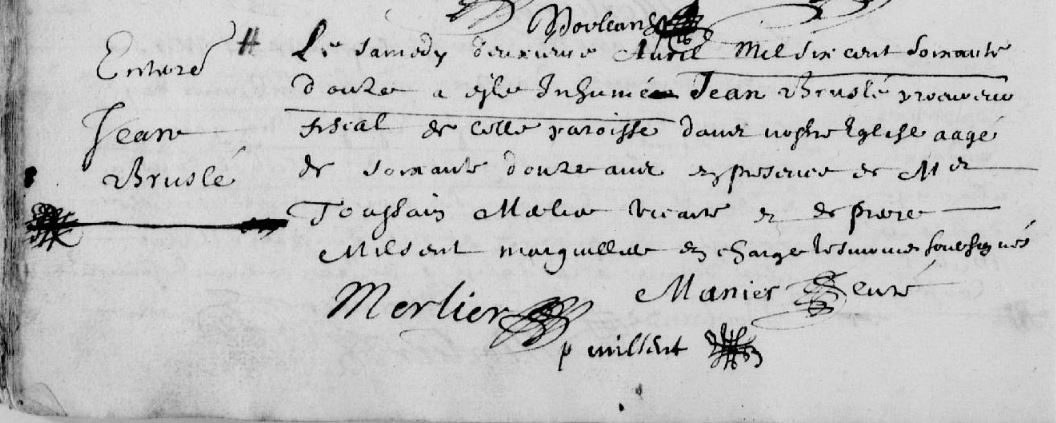 Dorleans
Enteré
Jean
Bruslé
Le samedy deuxieme Auril Mil six cent soixante
douze a este Inhumé Jean Bruslé procureur
fiscal de celle paroisse dans nostre Eglise aagé
de soixante douze ans en presence de Mre
Toussain vicaire et de piere
Milsent marguillier en charge tesmoins soubsignés
Merlier Manier
p millsent